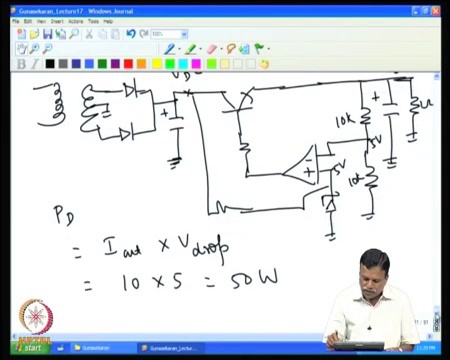 Gunasekaran_Lecture17 - Windows Journal
File Edit View Insert Actions Tools Help
100%
B
V_DC
+
+
10k
1Ω
5V
-
+
5V
10k
P_D
= I_out × V_drop
= 10 × 5 = 50W
start
Gunasekaran
Gunasekaran_Lectur...